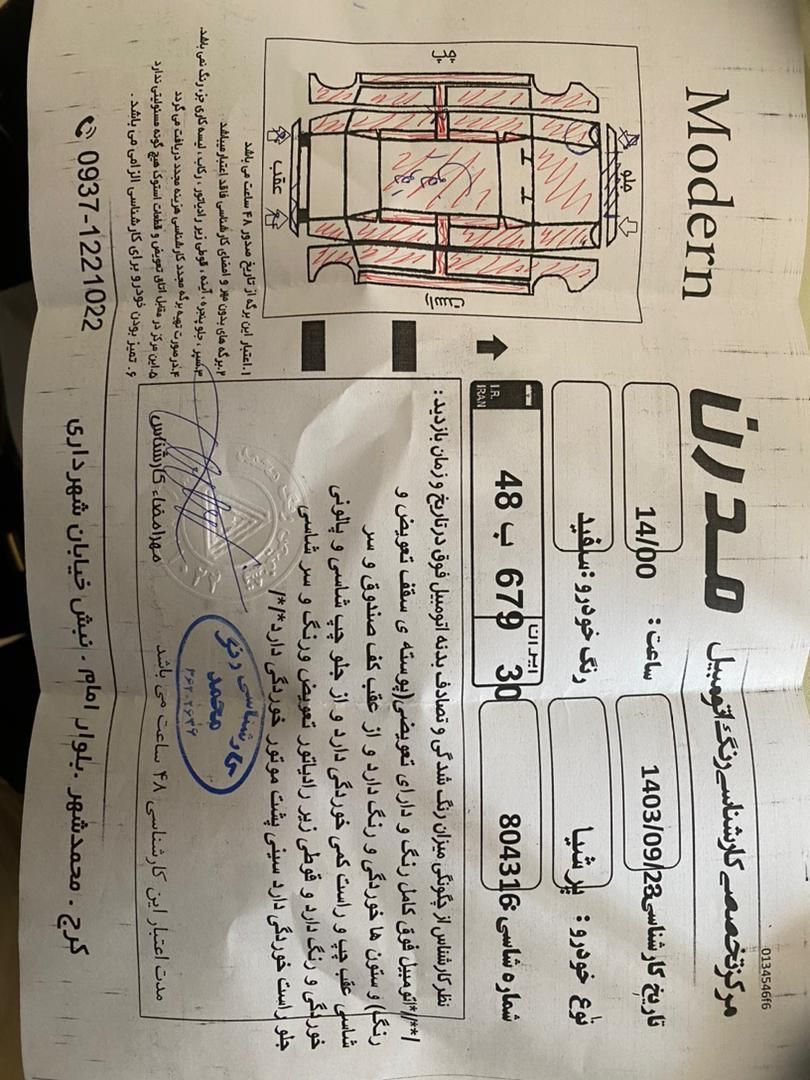 Modern
مدرن
مرکز تخصصی کارشناسی رنگ اتومبیل
0134546f6
تاریخ کارشناسی: 1403/09/28
ساعت: 14/00
نوع خودرو: پرشیا
رنگ خودرو: سفید
شماره شاسی: 804316
I.R.
IRAN
48 ب 679
ایران
30
چپ
جلو
عقب
راست
تعویض
نظر کارشناس از چگونگی میزان رنگ شدگی و تصادف بدنه اتومبیل فوق در تاریخ و زمان بازدید:
/**/*اتومبیل فوق کامل رنگ و دارای تعویضی(پوسته ی سقف تعویض و
رنگ) و ستون ها خوردگی و رنگ دارد و از عقب کف صندوق و سر
شاسی عقب چپ و راست کمی خوردگی دارد و از جلو چپ شاسی و پالونی
خوردگی و رنگ دارد و قوطی زیر رادیاتور تعویض ورنگ و سر شاسی
جلو راست خوردگی دارد سینی پشت موتور خوردگی دارد*/*/
مهر امضاء کارشناس
مدت اعتبار این کارشناسی ۴۸ ساعت می باشد
کارشناسی رنگ
محمد
۱. اعتبار این برگه از تاریخ صدور ۴۸ ساعت می باشد
۲.برگه های بدون مهر و امضای کارشناسی فاقد اعتبار میباشد
۳.سپر ، جلو پنجره ، آینه ، قوطی زیر رادیاتور ، رکاب ، لیسه کاری جزء رنگ نمی باشد.
۴.در صورت تهیه برگه مجدد کارشناسی هزینه مجدد دریافت می گردد
۵.این مرکز در مقابل اتاق تعویض و قطعات استوک هیچ گونه مسئولیتی ندارد
۶. تمیز بودن خودرو برای کارشناسی الزامی می باشد .
0937-1221022
کرج . محمدشهر .بلوار امام . نبش خیابان شهرداری